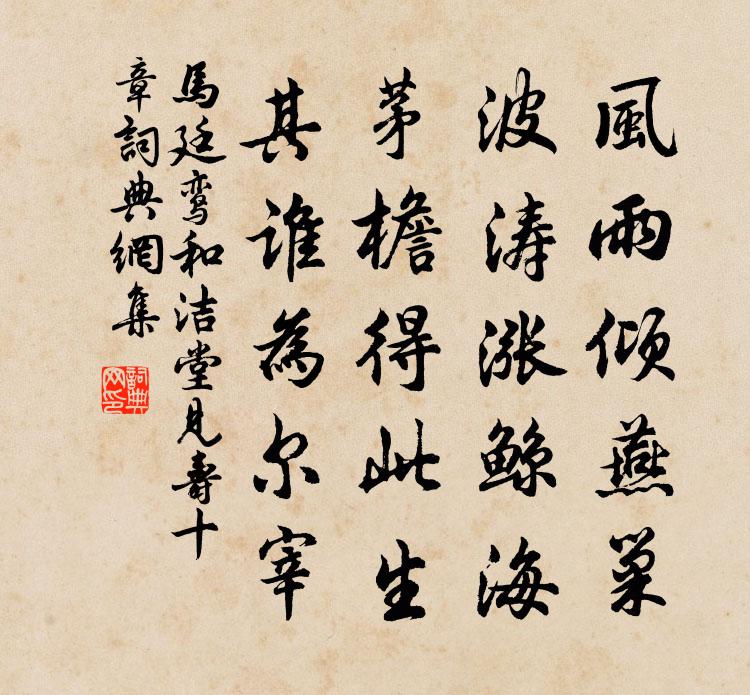 風雨倾燕巢
波涛漲鲸海
茅檐得此生
其谁為尔宰
馬廷鸾和洁堂見壽十
章詞典網集
詞典
网印